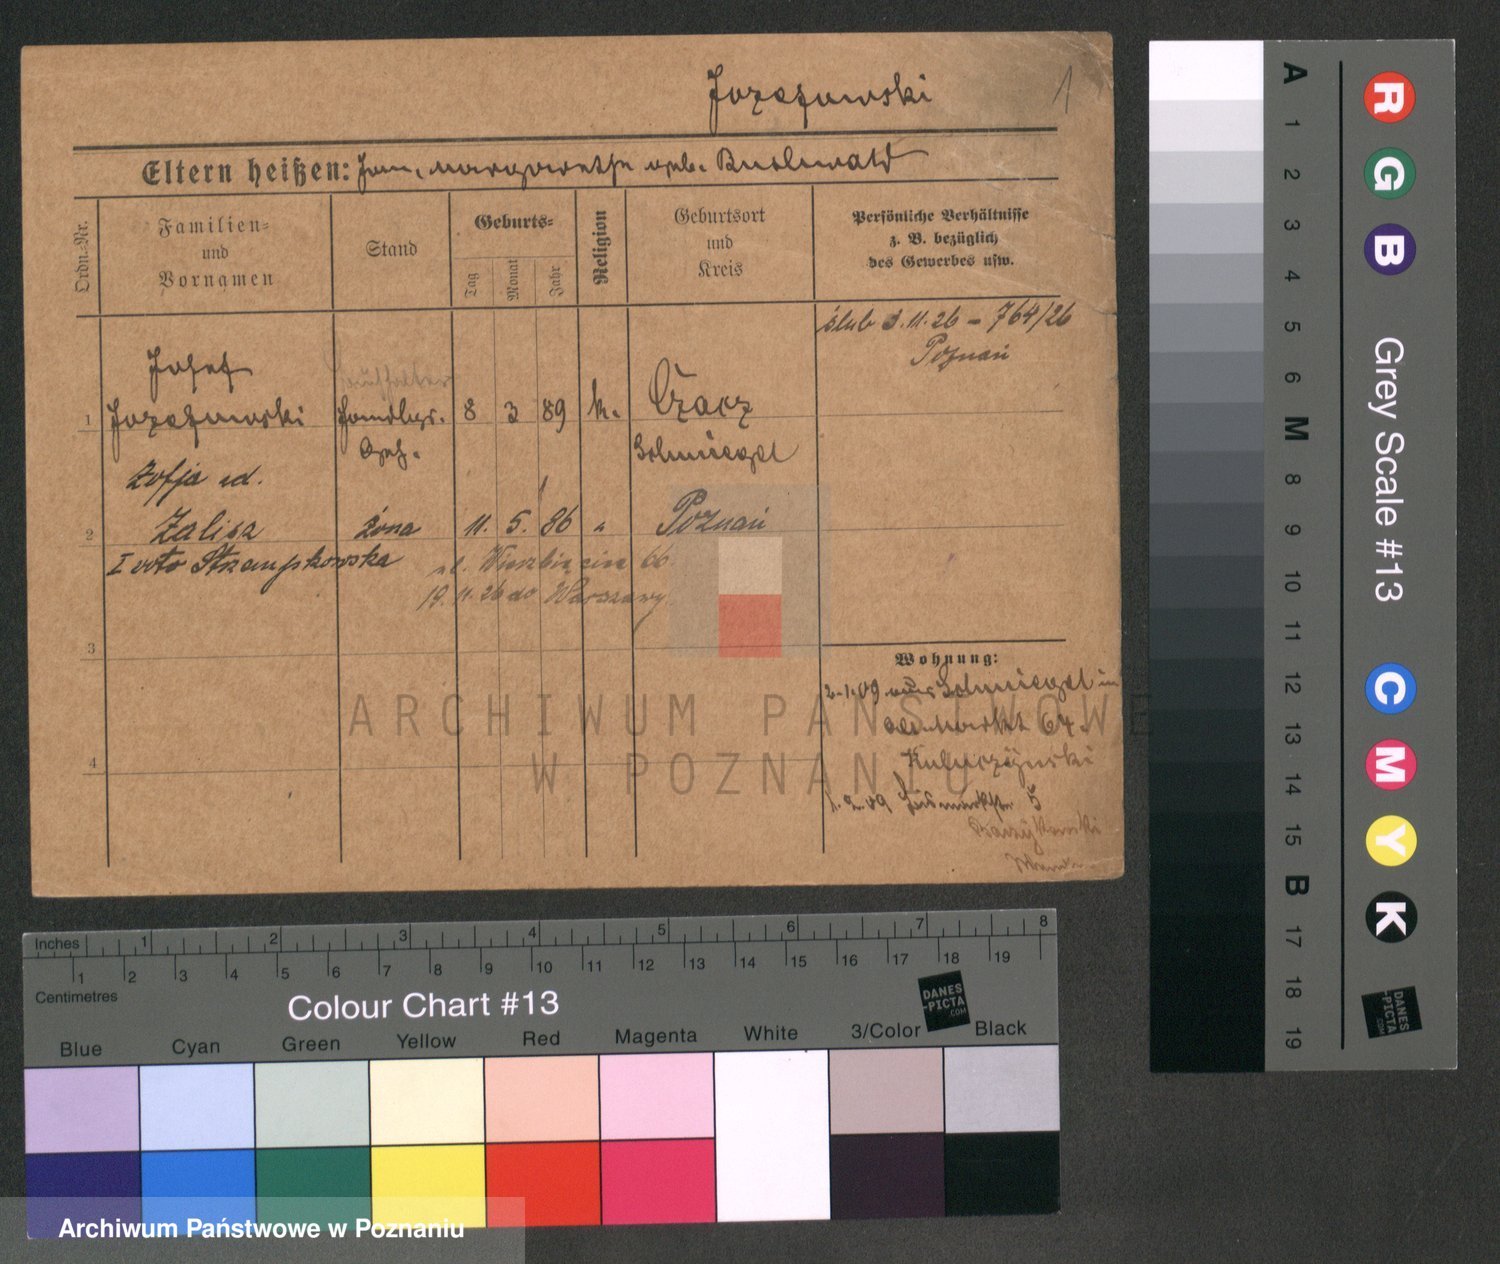 Jozefowski 1
Eltern heißen: Jan, Margarethe geb. Buchwald
Ordn.-Nr.
Familien-
und
Vornamen
Stand
Geburts-
Tag
Monat
Jahr
Religion
Geburtsort
und
Kreis
Persönliche Verhältnisse
z. B. bezüglich
des Gewerbes usw.
ślub 3.11.26 - 764/26
Poznań
Josef
1 Jozefowski Handlgs. 8 3 89 k. Czacz
Geh. Schmiegel
Zofja ud.
2 Zalisz żona 11. 5. 86 " Poznań
I voto Strzempkowska
ul. Wierzbięcice 66
19.11.26 do Warszawy
3
4
Wohnung:
2.1.09 aus Schmiegel in
Markt 64.
1.2.09 5
ARCHIWUM PAŃSTWOWE
W POZNANIU
A 1 2 3 4 5 6 M 8 9 10 11 12 13 14 15 B 17 18 19
Grey Scale #13
R G B C M Y K
DANES
-PICTA
.COM
Inches 1 2 3 4 5 6 7 8
1 2 3 4 5 6 7 8 9 10 11 12 13 14 15 16 17 18 19
Centimetres
Colour Chart #13
DANES
-PICTA
.COM
Blue Cyan Green Yellow Red Magenta White 3/Color Black
Archiwum Państwowe w Poznaniu